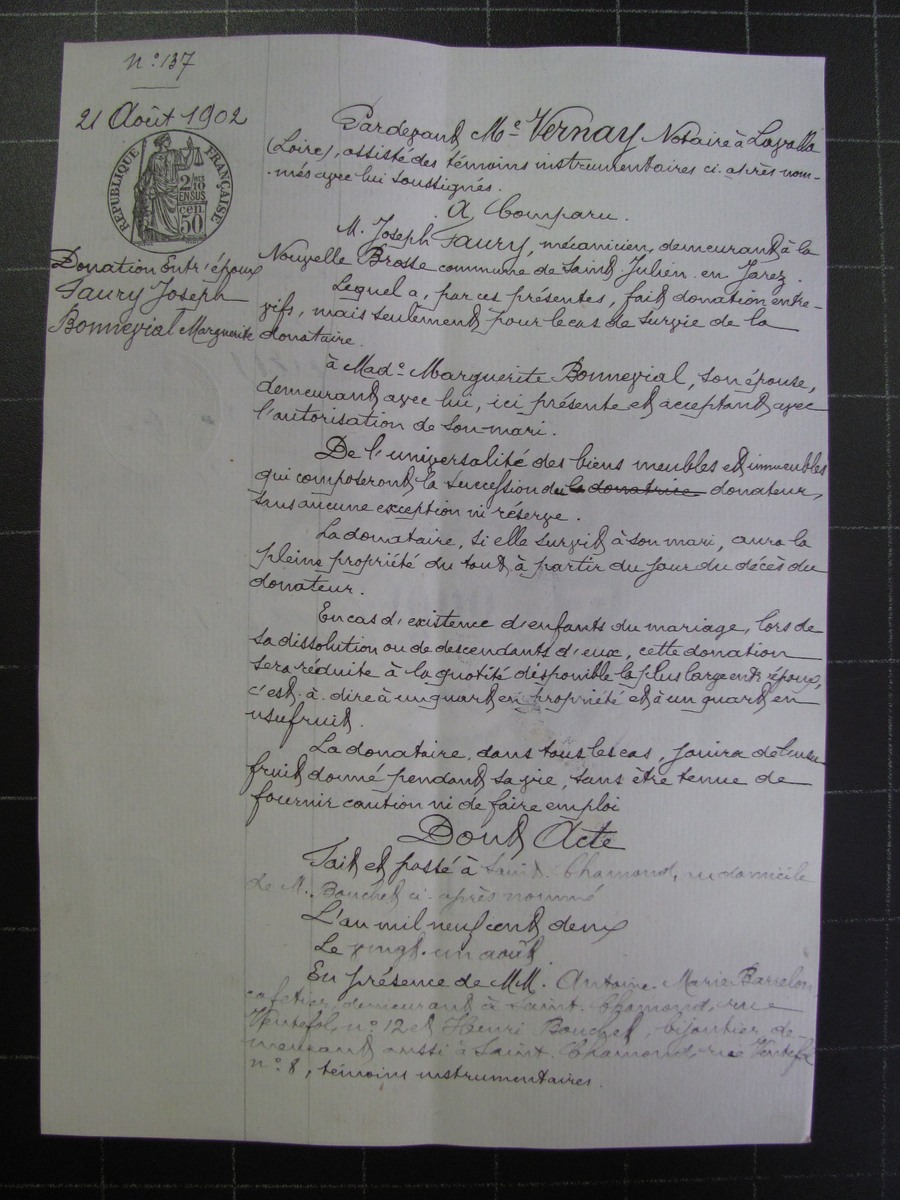 N° 137
21 Août 1902
RÉPUBLIQUE FRANÇAISE
2/10
EN SUS
cen
50
Donation Entr'époux
Faury Joseph
Bonnevial Marguerite
Pardevant Me Vernay Notaire à Lavalla
(Loire), assisté des témoins instrumentaires ci-après nom-
-més avec lui soussignés.
A Comparu.
M. Joseph Faury, mécanicien, demeurant à la
Nouvelle Brosse commune de Saint Julien-en-Jarez.
Lequel a, par ces présentes, fait donation entre-
vifs, mais seulement pour le cas de survie de la
donataire.
à Made Marguerite Bonnevial, son épouse,
demeurant avec lui, ici présente et acceptant avec
l'autorisation de son mari.
De l'universalité des biens meubles et immeubles
qui composeront la succession du la donatrice donateur,
sans aucune exception ni réserve.
La donataire, si elle survit à son mari, aura la
pleine propriété du tout à partir du jour du décès du
donateur.
En cas d'existence d'enfants du mariage, lors de
sa dissolution ou de descendants d'eux, cette donation
sera réduite à la quotité disponible la plus large entr'époux,
c'est-à-dire à un quart en propriété et à un quart en
usufruit.
La donataire, dans tous les cas, jouira de l'usu
fruit donné pendant sa vie, sans être tenue de
fournir caution ni de faire emploi
Dont Acte
Fait et passé à Saint-Chamond, au domicile
de M. Bouchet ci-après nommé
L'an mil neuf cent deux
Le vingt-un août.
En présence de MM. Antoine-Marie
cafetier, demeurant à Saint-Chamond, rue
n° 12 et Henri Bouchet, bijoutier de-
meurant aussi à Saint-Chamond, rue
n° 8, témoins instrumentaires.